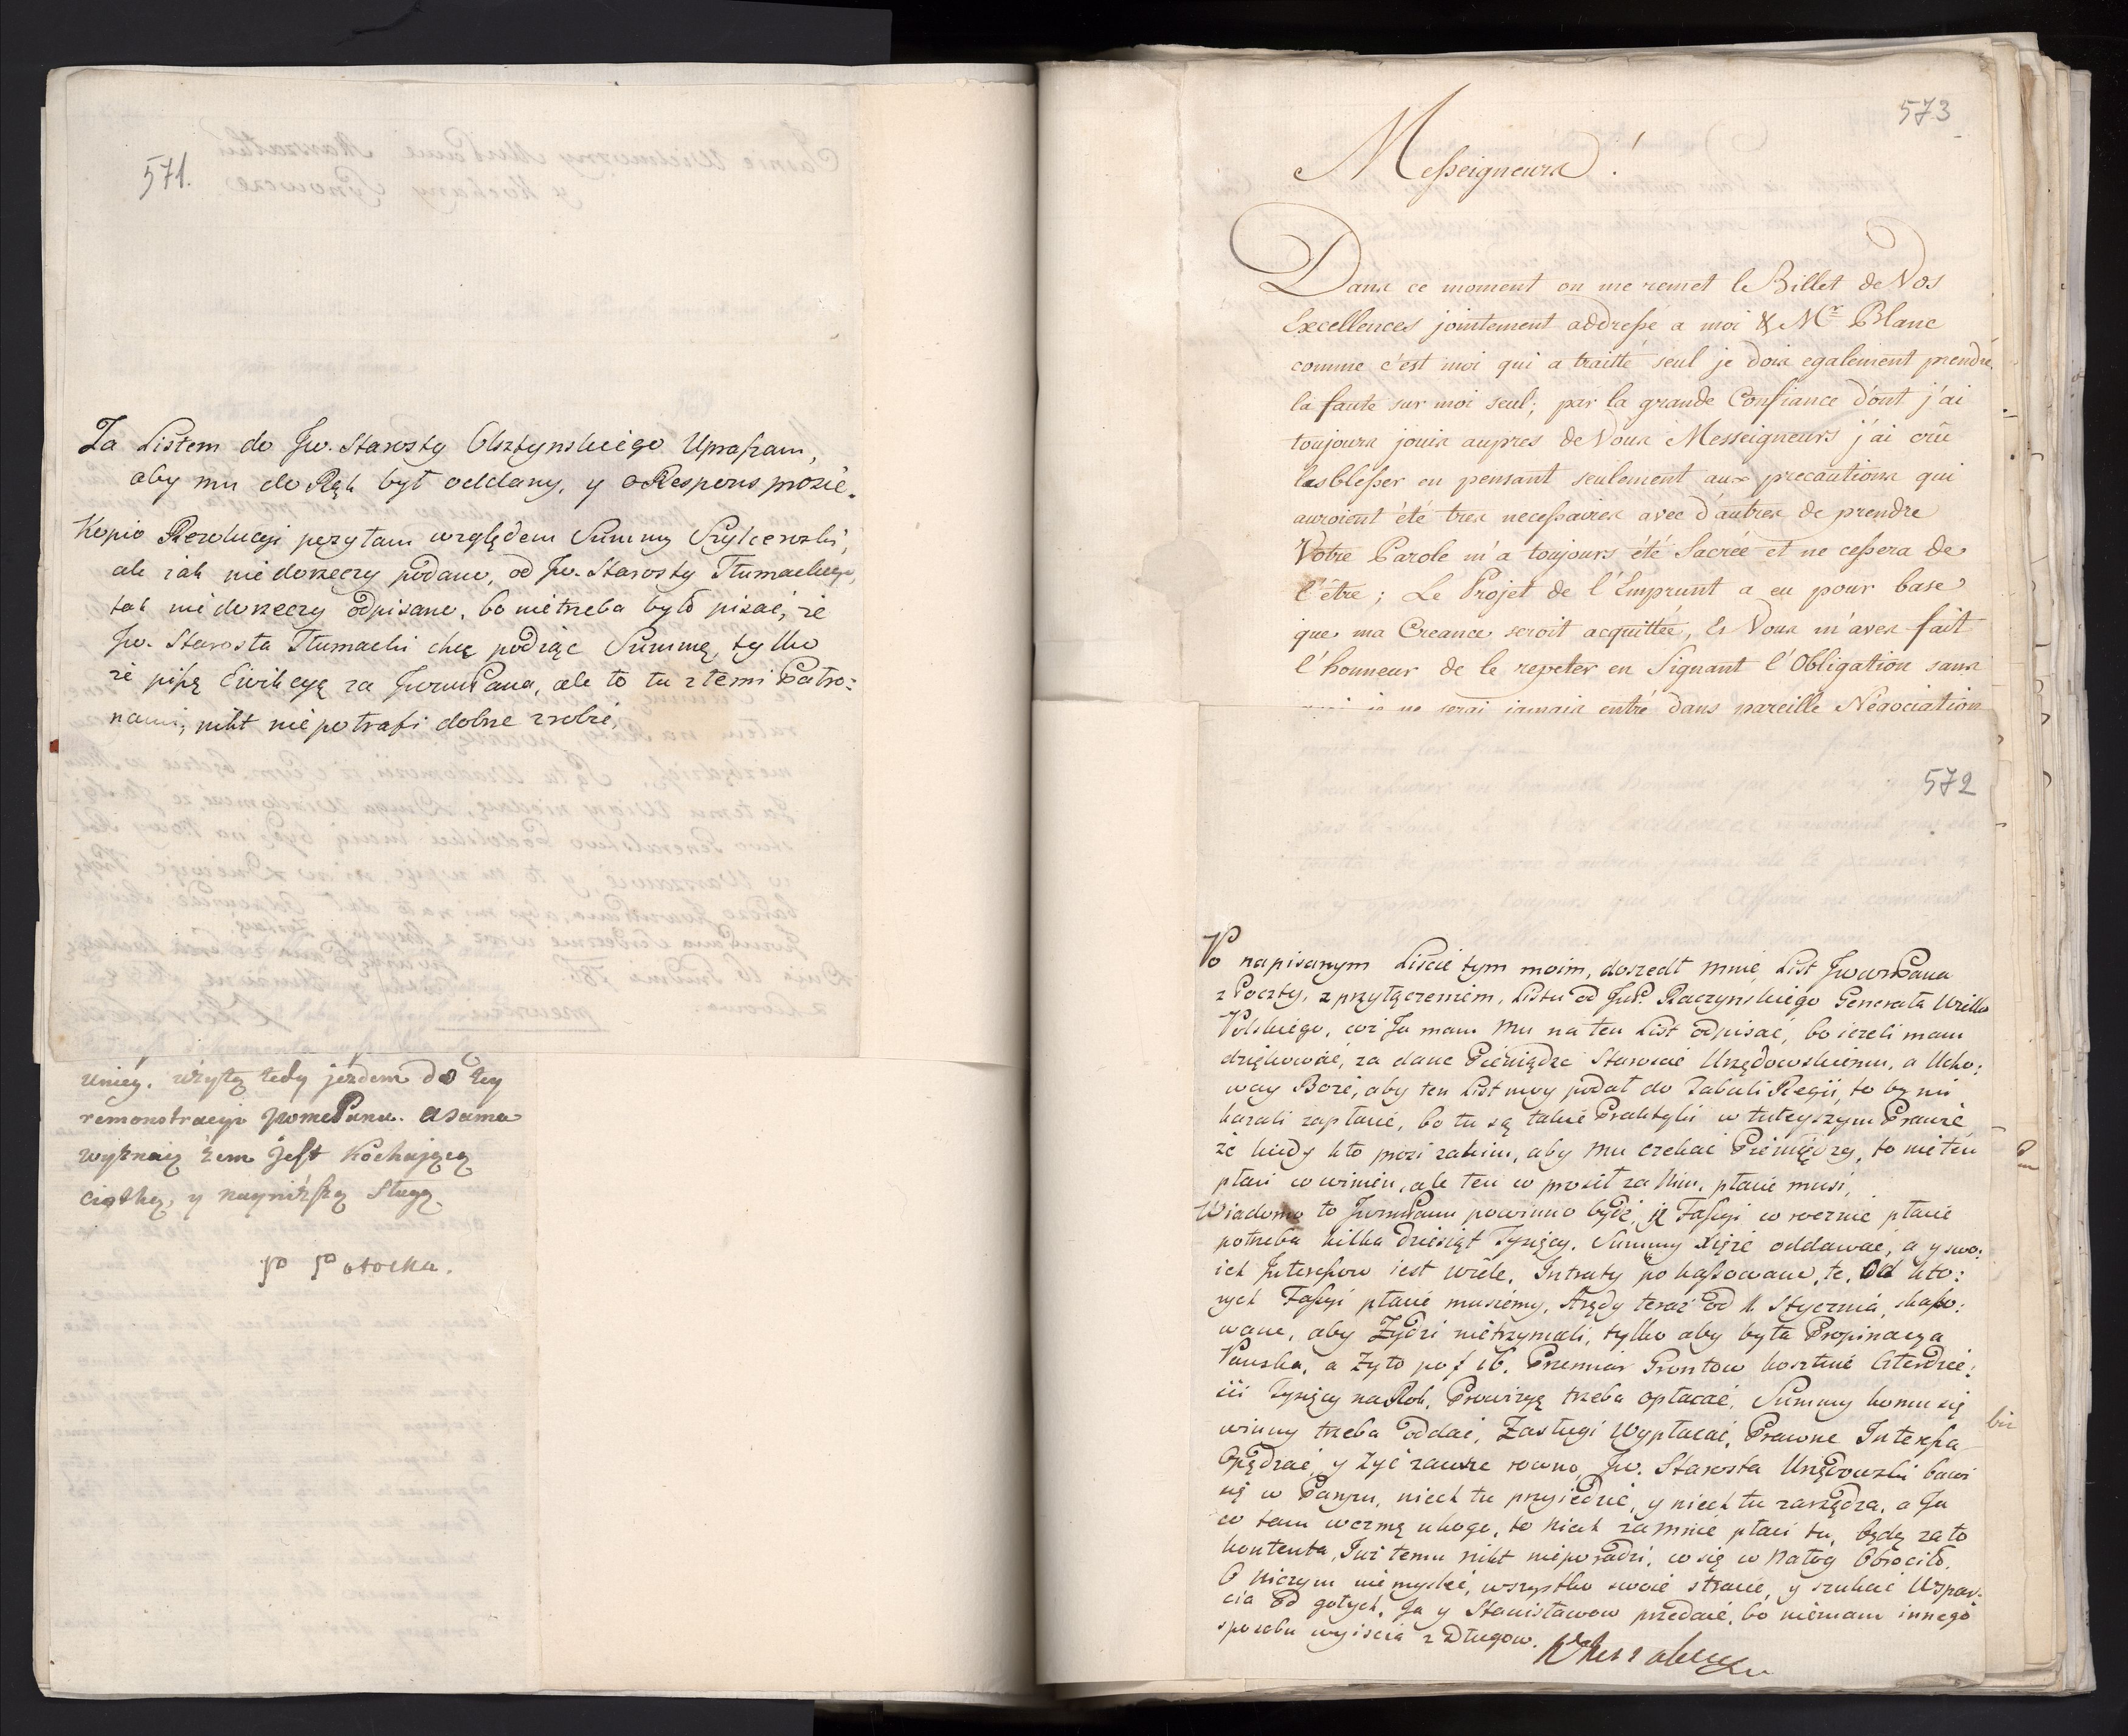 571.
Za Listem do Jw. Starosty Olsztynskiego Upraszam,
aby mu do Rąk był oddany, y o Respons proszę.
Kopio Rezolucyi posyłam względem Summy
ale iak nie dorzeczy podano, od Jw. Starosty Tłumackiego,
tak nie dorzeczy odpisano, bo nie trzeba było pisać, że
Jw. Starosta Tłumacki chce podiąć Summę, tylko
że piszę Ewikcyę za JwwPana, ale to tu z temi Patro:
nami, nikt nie potrafi dobrze zrobić,
uniey. użytą tedy jezdem do tey
remonstracyi Pana. a sama
wyznaię żem jest Kochającą
ciotką, y nayniższą sługą
P Potocka.
573
Messeigneurs!
Dans ce moment on me remet le Billet de Vos
Excellences jointement addressé a moi & Mr Blanc
comme c'est moi qui a traitté seul je dois egalement prendre
la faute sur moi seul; par la grande Confiance d'ont j'ai
toujours jouis aupres de Vous Messeigneurs j'ai crû
les blesser en pensant seulement aux precautions qui
auroient été tres necessaires avec d'autres de prendre
Votre Parole m'a toujours été Sacrée et ne cessera de
l'être; Le Projet de l'Emprunt a eu pour base
que ma Creance seroit acquittée, & Vous m'aves fait
l'honneur de le repeter en Signant l'Obligation sans
je ne serai jamais entré dans pareille Négociation
572
Po napisanym Liscie tym moim, doszedł mnie List JwwPana
z Poczty, z przyłączeniem, Listu od JwP. Raczynskiego Generała Wielko
Polskiego, coż Ja mam mu na ten List odpisać, bo ieżeli mam
dziękować, za dane Pieniądze Staroscie Urzędowskiemu, a Ucho:
way Boże, aby ten List moy podał do Tabuli Regii, to by mi
kazali zapłacić, bo tu są takie Praktyki w tuteyszym Prawie
że kiedy kto prosi za kim, aby mu czekać Pieniędzy, to nie ten
płaci co winien, ale ten co prosił za nim, płacić musi,
Wiadomo to JwwPanu powinno bydź, iż Fassyi co rocznie płacić
potrzeba kilka dziesiąt Tysięcy. Summy Xięże oddawać, a y swo:
ich Interessow iest wiele, Intraty pokassowane, te, od kto:
rych Fassyi płacić musiemy, Arędy teraz od 1. Stycznia, skasso:
wane, aby Żydzi nie trzymali, tylko aby była Propinacya
Panska, a Żyto po f 16. Przemiar Grontow kosztuie Czterdzie:
ści Tysięcy na Rok, Prowizyę trzeba opłacać, Summy komu się
winny trzeba oddać, Zasługi Wypłacać, Prawne Interessa
Opędzać, y żyć zawsze rowno, Jw. Starosta Urzędowski bawi
się w Paryżu, niech tu przyiedzie, y niech tu zarządza, a Ja
co tam wezmę u kogo, to niech za mnie płaci tu, będę za to
kontenta, Już temu nikt nie poradzi, co się w Nałog Obrociło.
O niczym nie myśleć, wszystko swoie stracić, y szukać Wspar:
cia od gołych. Ja y Stanisławow przedaię, bo nie mam innego
sposobu wyiścia z Długow.
bir